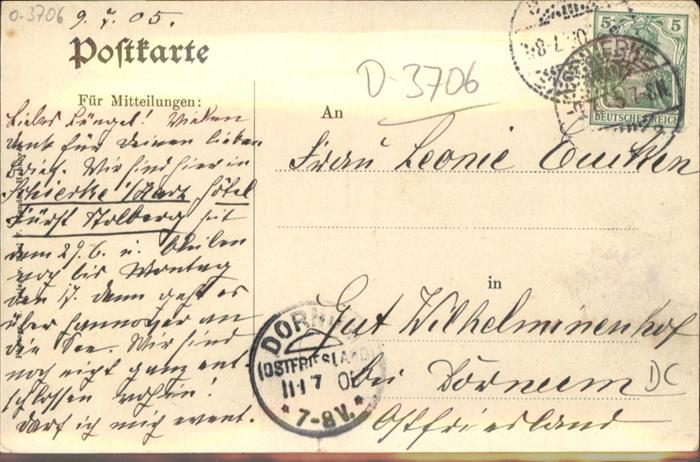 0-3706
9. 7. 05.
Postkarte
D-3706
5 5
DEUTSCHES REICH
Für Mitteilungen:
An
Liebes Büngel! Vielen
Dank für Deinen lieben
Brief. Wir sind hier in
Schierke /Harz Hôtel
Fürst Stolberg seit
dem 29.6. u. bleiben
noch bis Montag
den 17. dann geht es
über Hannover an
die See. Wir sind
noch nicht ganz ent-
schlossen wohin!
Darf ich mich event.
Frau Leonie Eucken
in
Gut Wilhelminenhof
bei Dornum
Ostfriesland
DORNUM
(OSTFRIESLAND)
11 7 05
* 7-8V. *
DC